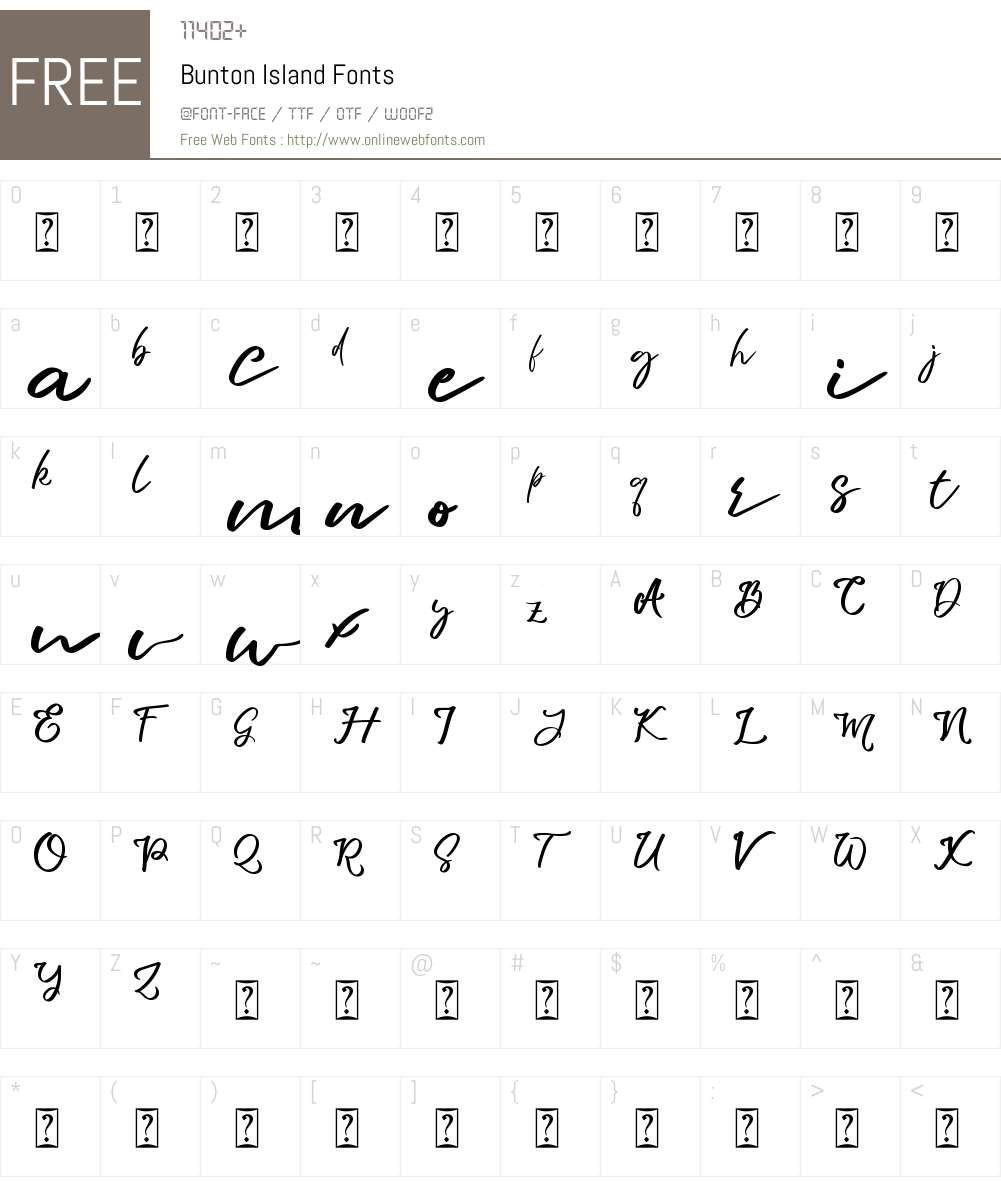 FREE
11402+
Bunton Island Fonts
@FONT-FACE / TTF / OTF / WOOF2
Free Web Fonts : http://www.onlinewebfonts.com
0 1 2 3 4 5 6 7 8 9
? ? ? ? ? ? ? ? ? ?
a b c d e f g h i j
a b c d e f g h i j
k l m n o p q r s t
k l m n o p q r s t
u v w x y z A B C D
u v w x y z A B C D
E F G H I J K L M N
E F G H I J K L M N
O P Q R S T U V W X
O P Q R S T U V W X
Y Z ~ ~ @ # $ % ^ &
Y Z ? ? ? ? ? ? ? ?
* ( ) [ ] { } : > <
? ? ? ? ? ? ? ? ? ?